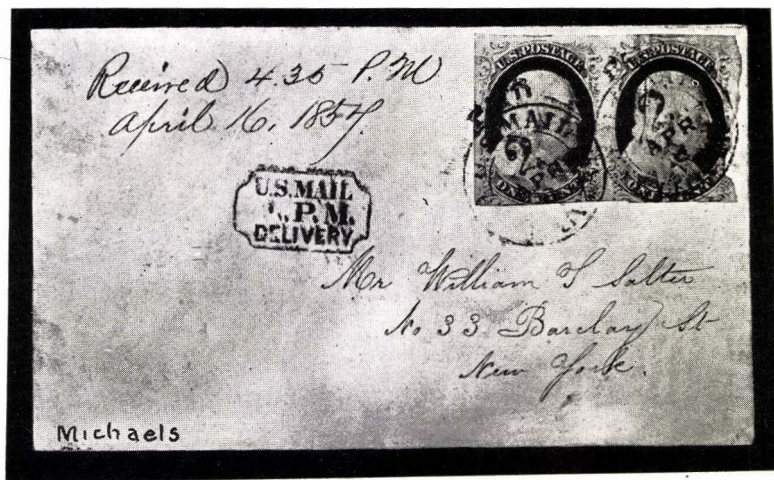 Received 4.35 P.M
April 16, 1857.
U.S. POSTAGE
U.S. POSTAGE
MAIL
2
APR
2
APR
U.S. MAIL
P.M.
DELIVERY
Mr William T Salter
No 33 Barclay St
New York.
Michaels